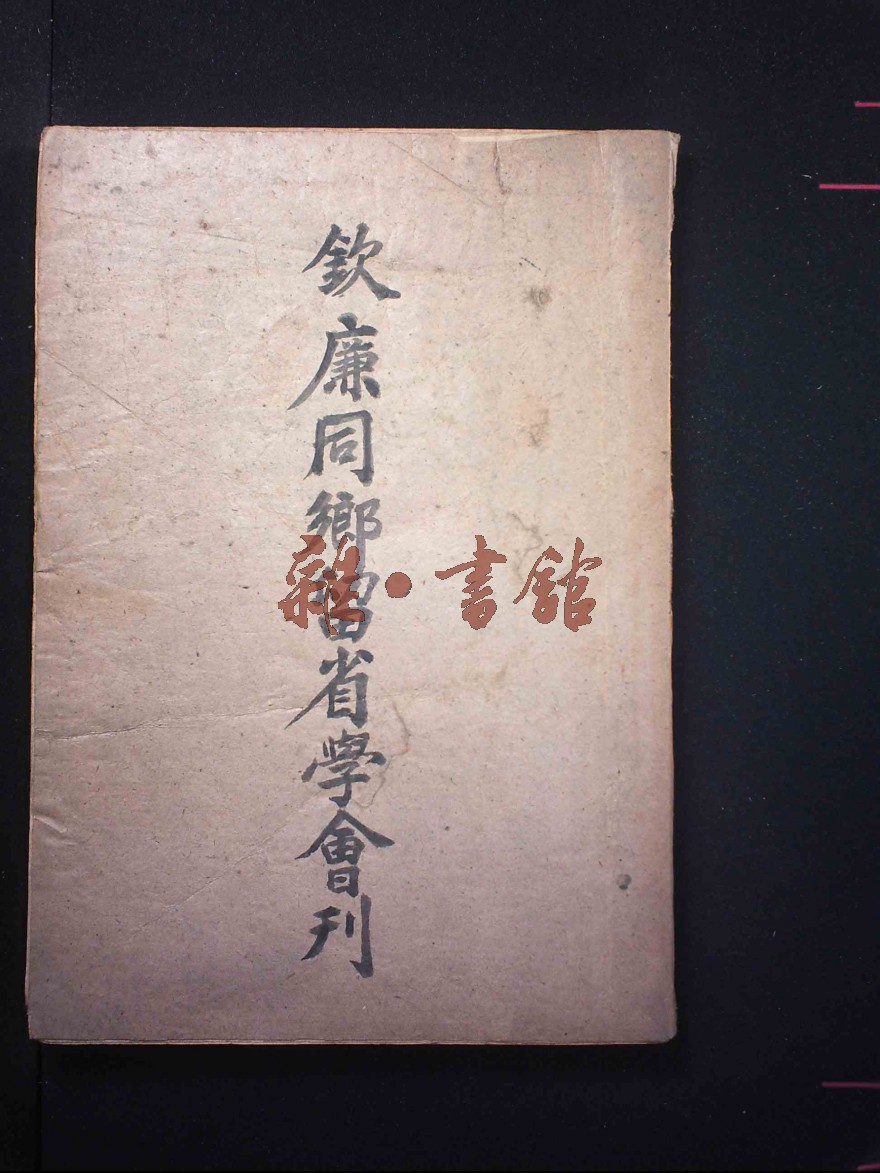 欽廉同鄉留省學會刊
雜·書館